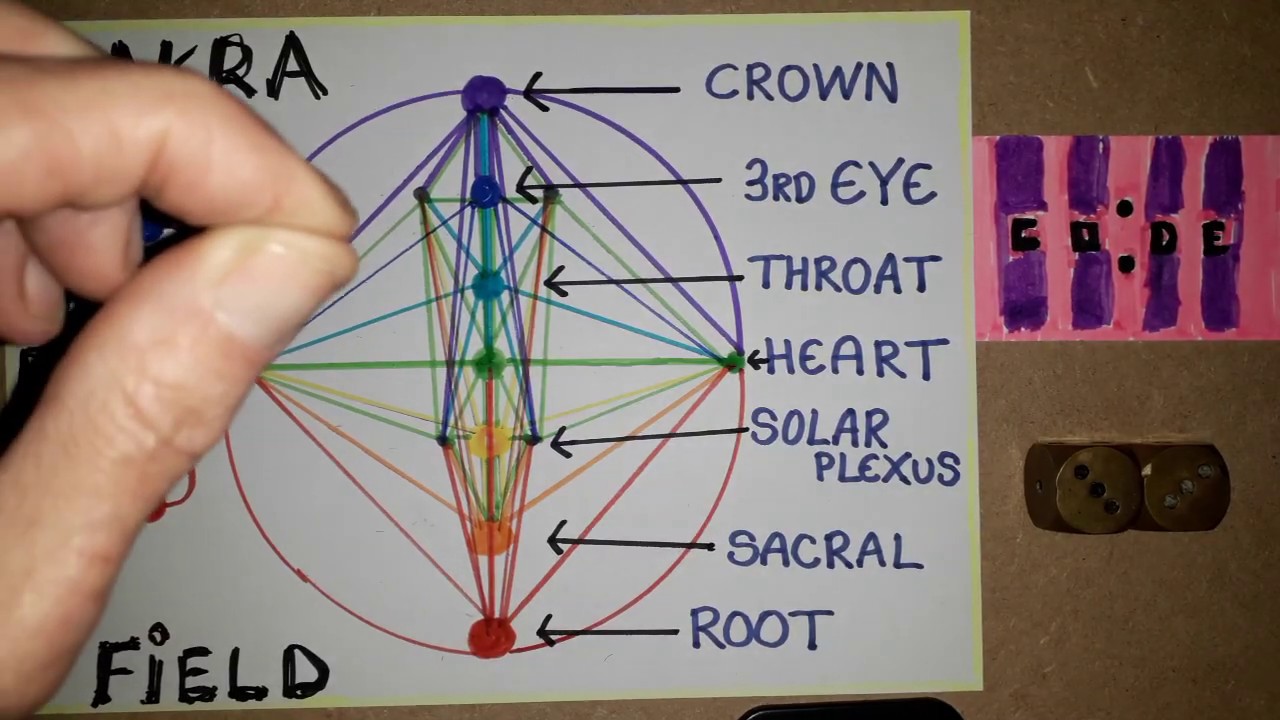 CROWN
3RD EYE
THROAT
HEART
SOLAR
PLEXUS
SACRAL
ROOT
FiELD
CO:DE